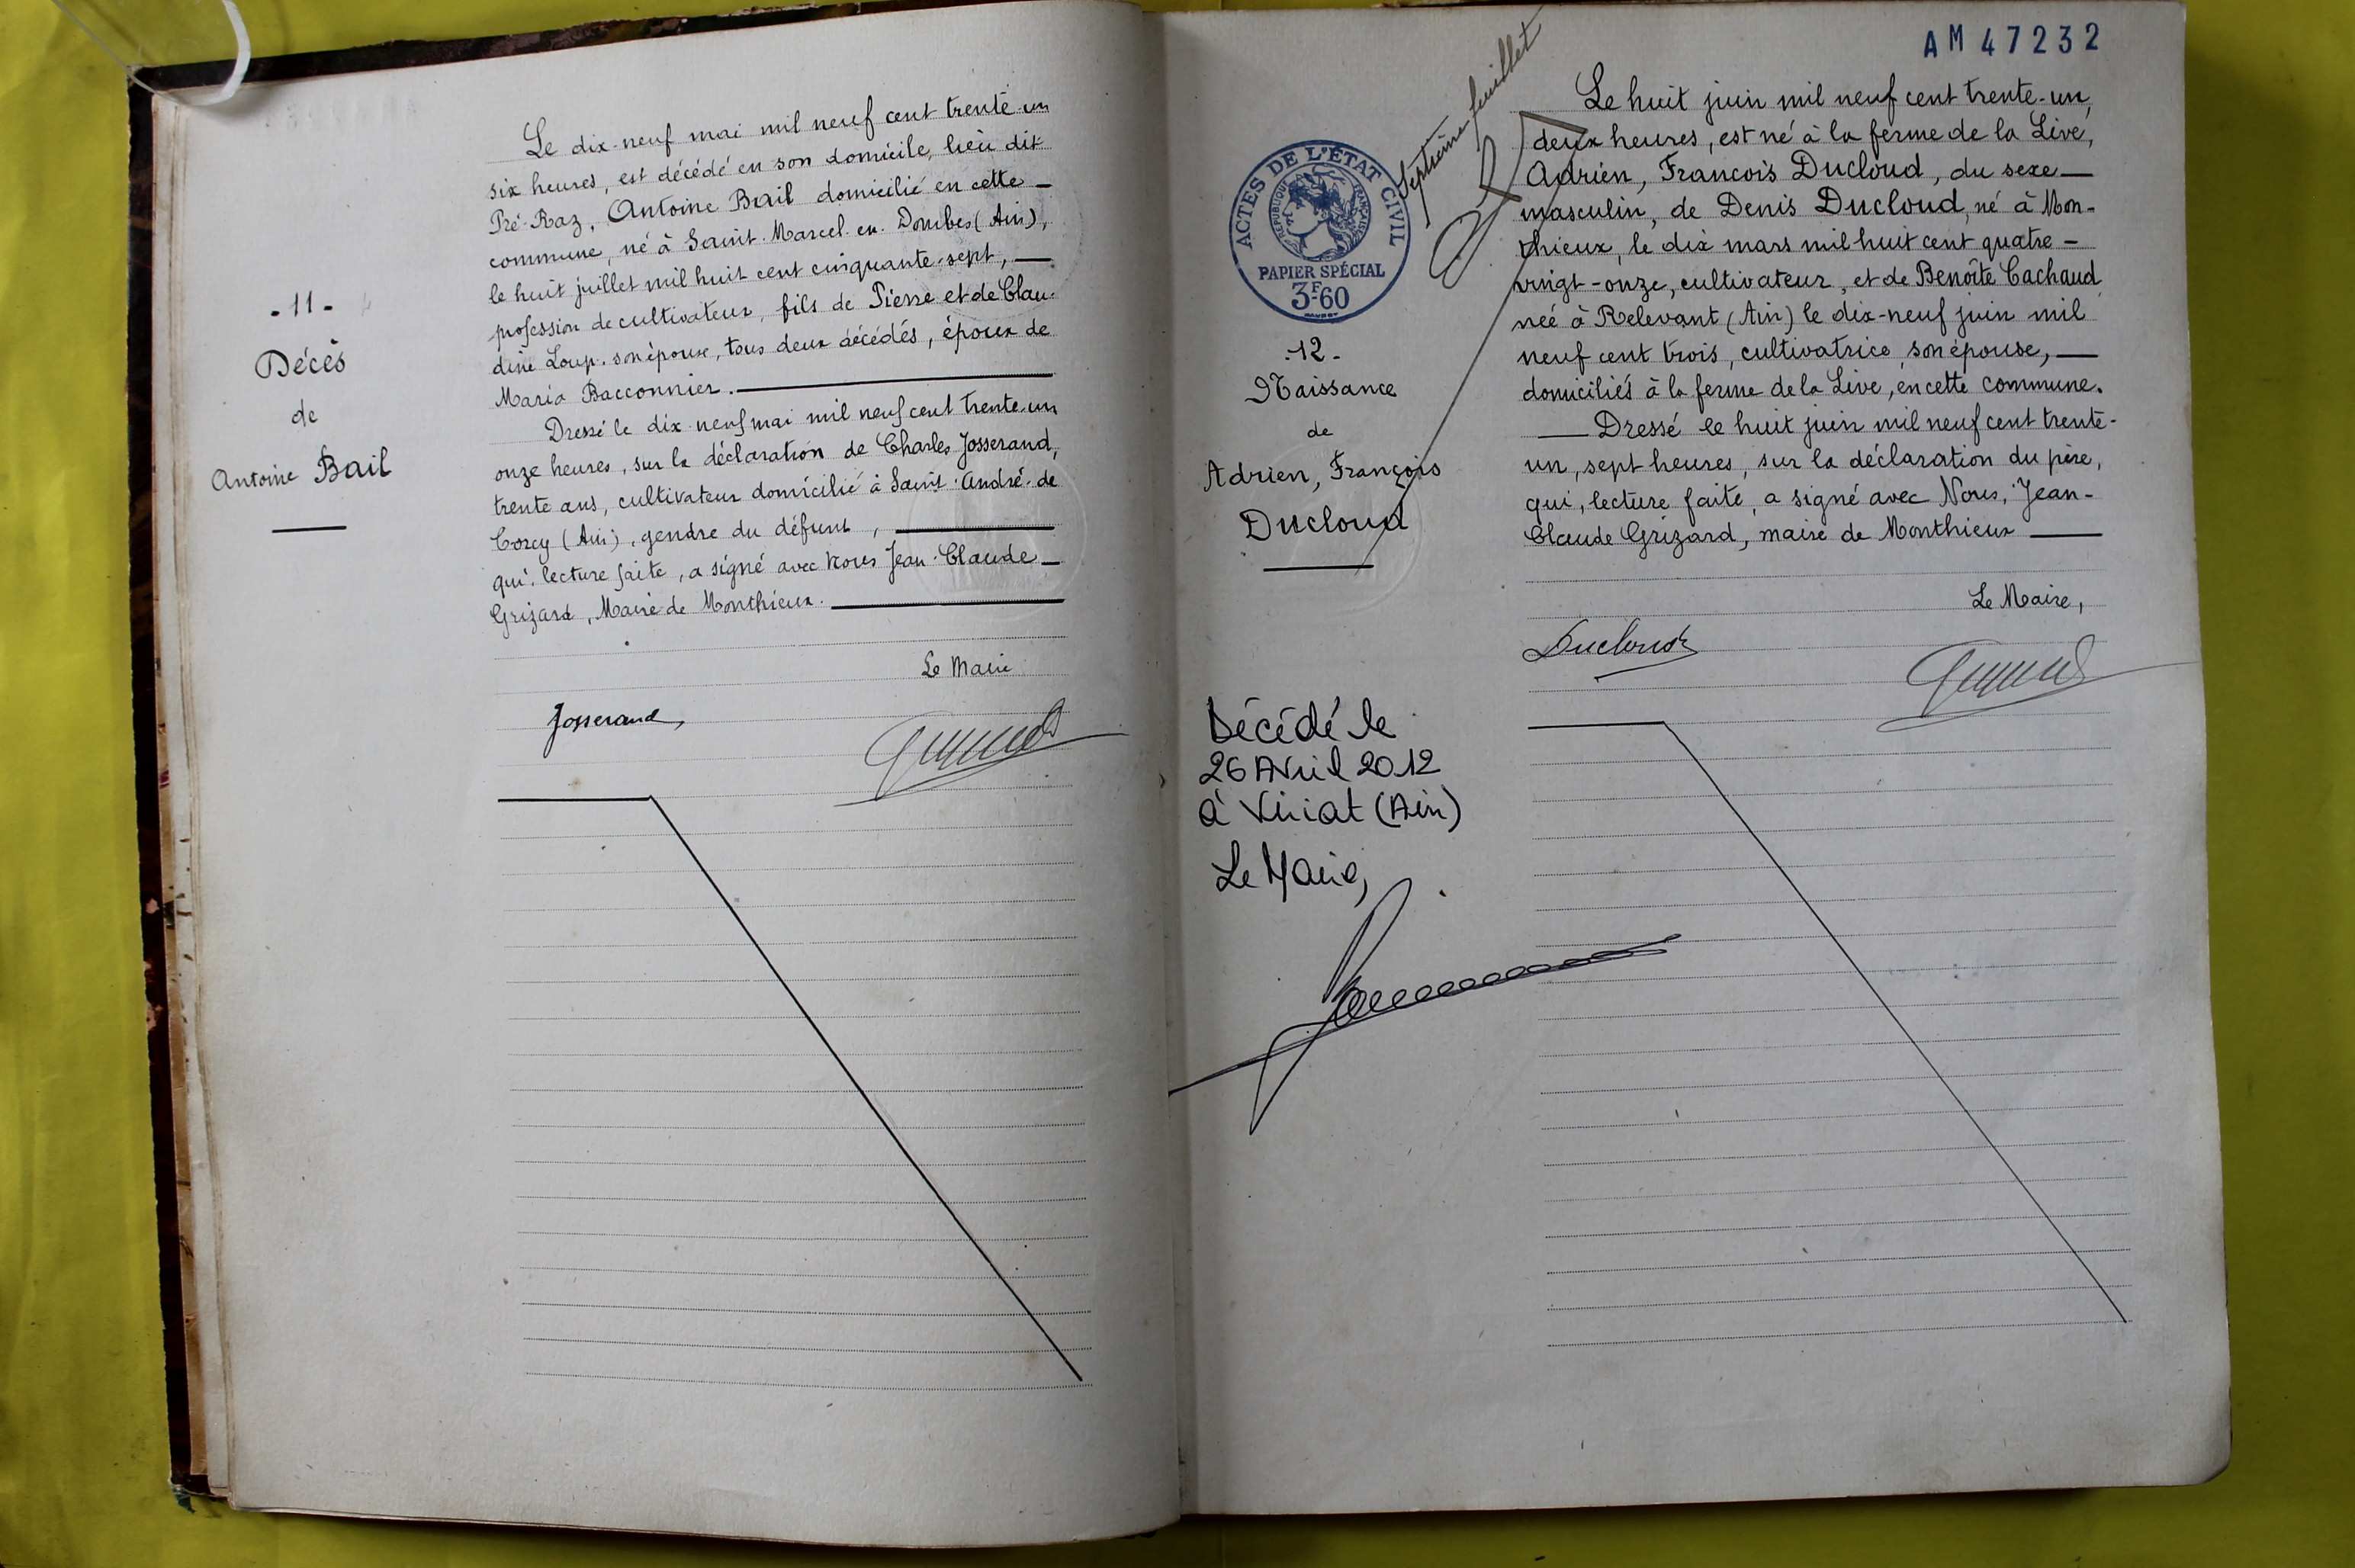 -11-
Décès
de
Antoine Bail
Le dix-neuf mai mil neuf cent trente-un
six heures, est décédé en son domicile, lieu dit
Pré-Raz, Antoine Bail domicilié en cette
commune, né à Saint-Marcel-en-Dombes (Ain),
le huit juillet mil huit cent cinquante-sept,
profession de cultivateur, fils de Pierre et de Clau-
dine Loup, son épouse, tous deux décédés, époux de
Maria Bacconnier.
Dressé le dix-neuf mai mil neuf cent trente-un
onze heures, sur la déclaration de Charles Josserand,
trente ans, cultivateur domicilié à Saint-André-de
Corcy (Ain), gendre du défunt,
qui, lecture faite, a signé avec Nous Jean-Claude
Grizard, Maire de Monthieux.
Le Maire
Josserand,
AM 47232
Septième feuillet
ACTES DE L'ÉTAT CIVIL
RÉPUBLIQUE FRANÇAISE
PAPIER SPÉCIAL
3F60
-12-
Naissance
de
Adrien, François
Ducloud
Décédé le
26 Avril 2012
à Viriat (Ain)
Le Maire,
Le huit juin mil neuf cent trente-un,
deux heures, est né à la ferme de la Live,
Adrien, François Ducloud, du sexe
masculin, de Denis Ducloud, né à Mon-
thieux, le dix mars mil huit cent quatre-
vingt-onze, cultivateur, et de Benoîte Cachaud
née à Relevant (Ain) le dix-neuf juin mil
neuf cent trois, cultivatrice son épouse,
domiciliés à la ferme de la Live, en cette commune.
Dressé le huit juin mil neuf cent trente-
un, sept heures, sur la déclaration du père,
qui, lecture faite, a signé avec Nous, Jean-
Claude Grizard, maire de Monthieux
Le Maire,
Ducloud